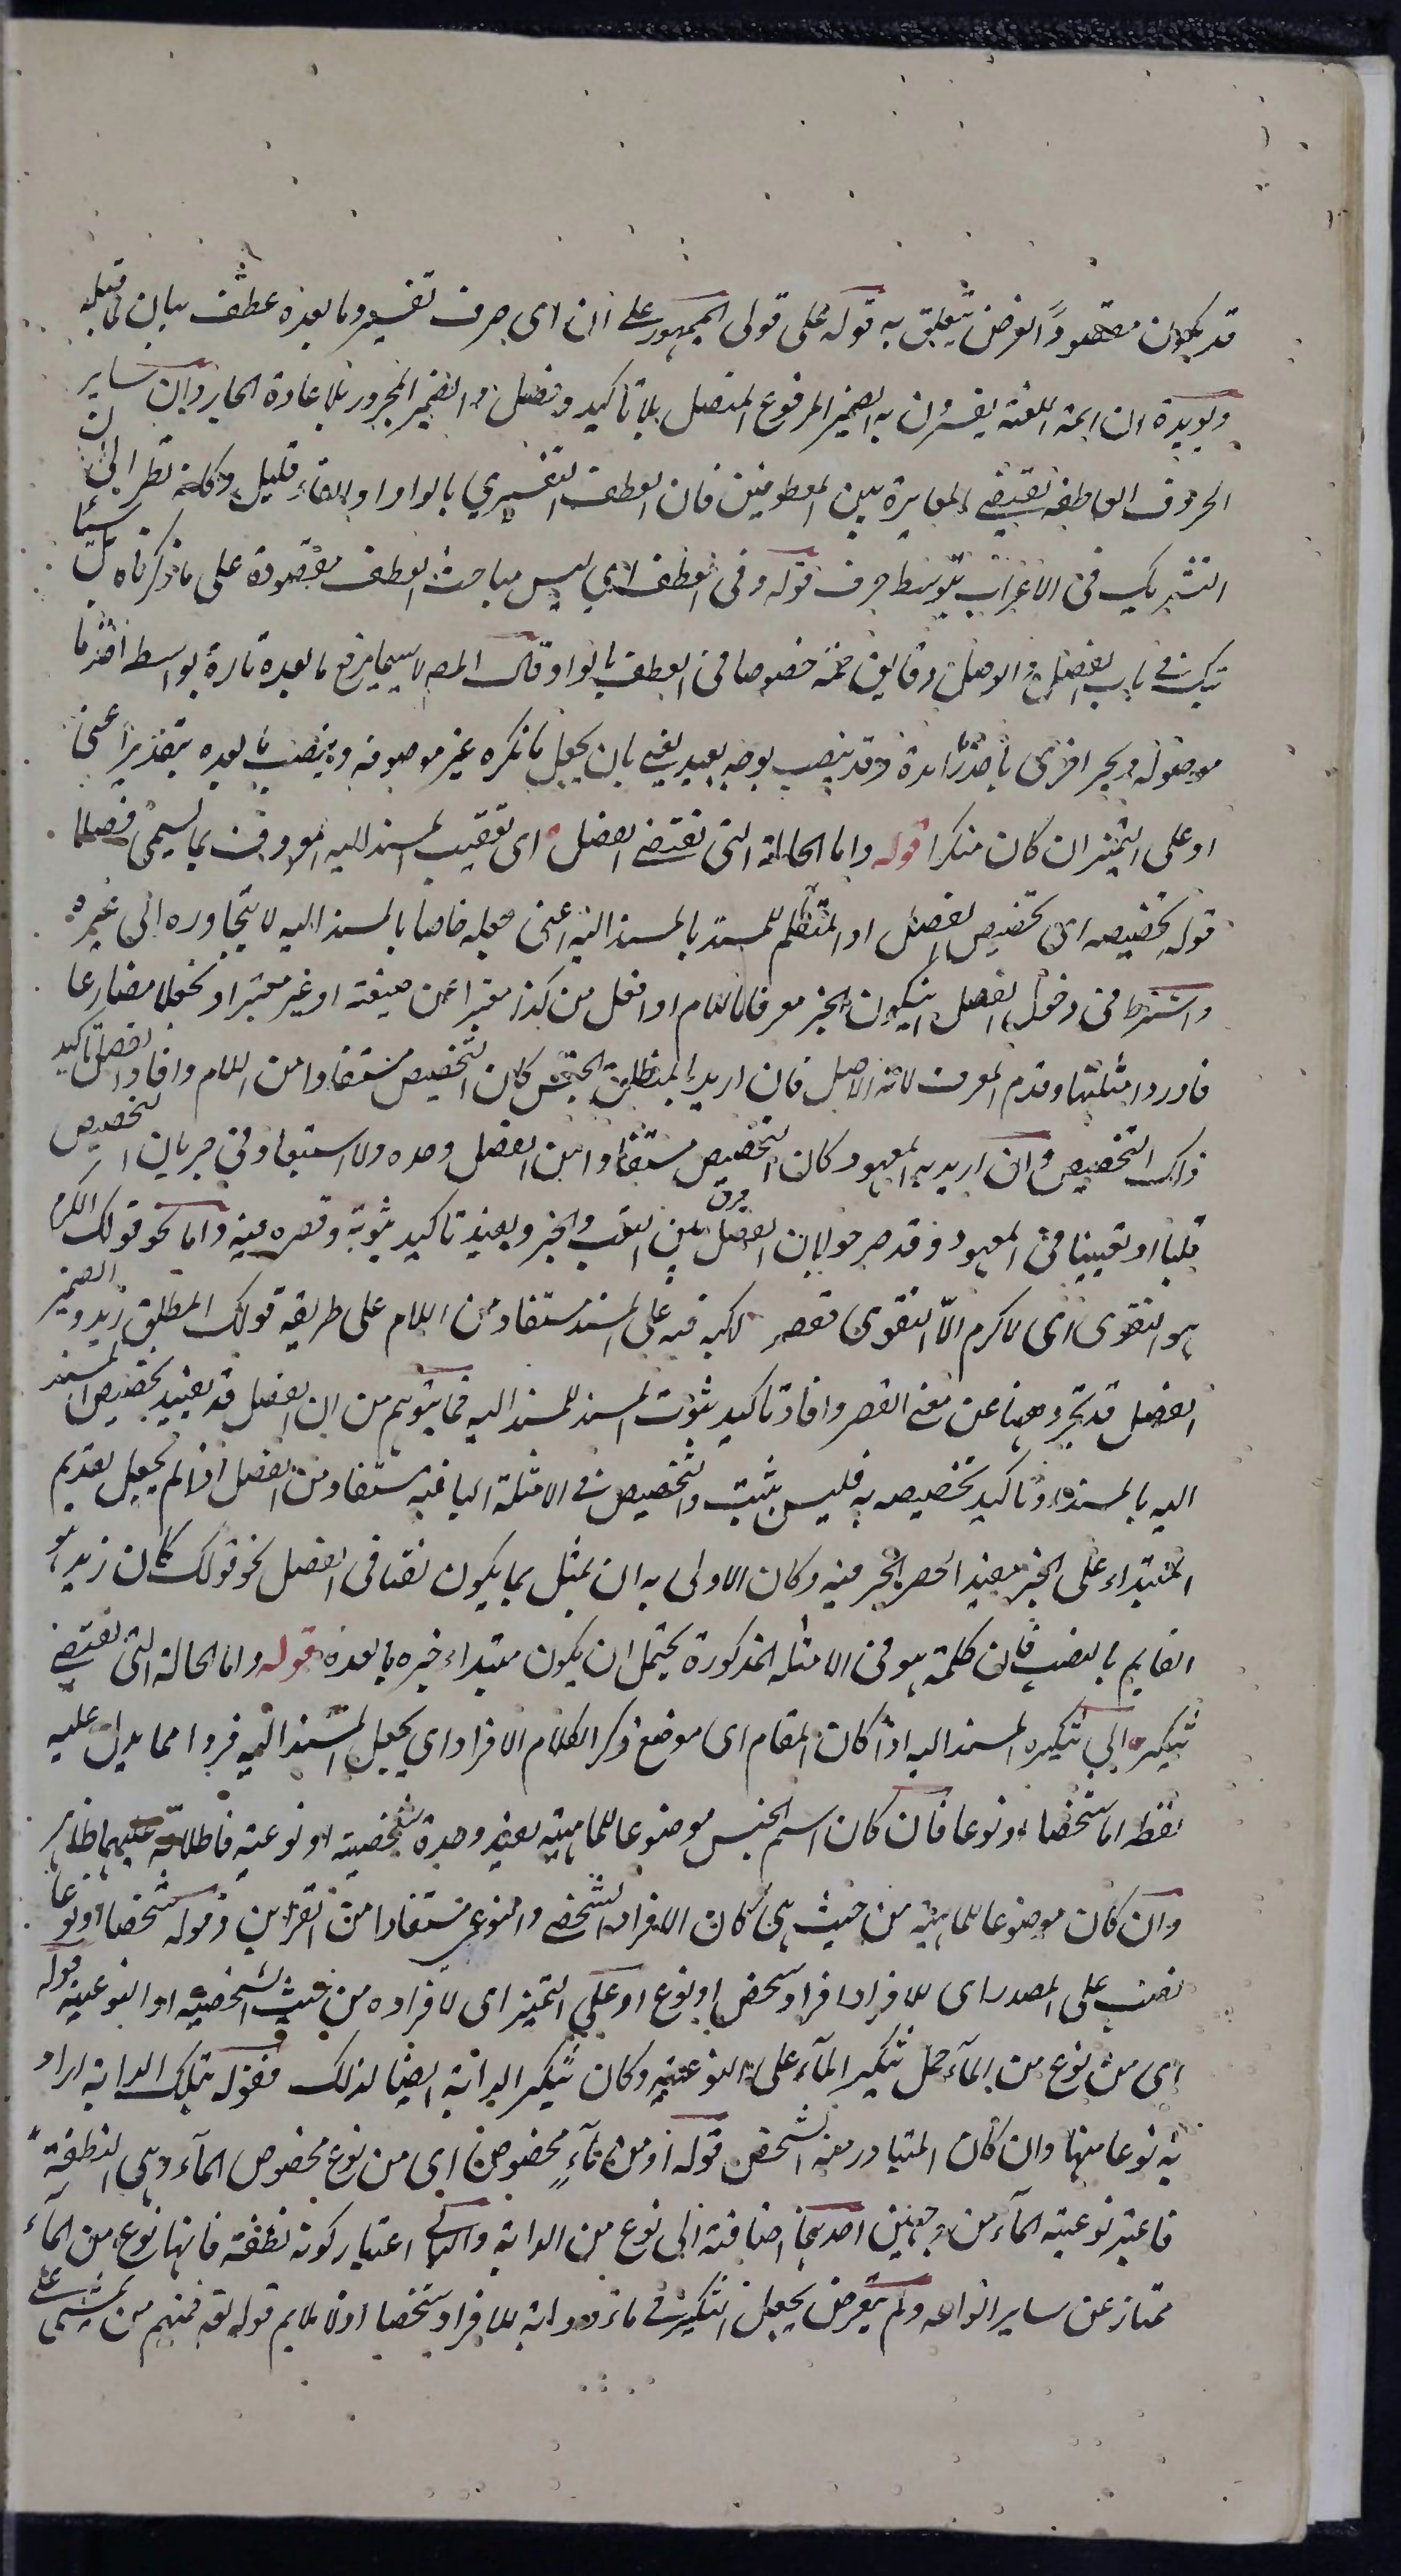 قد يكون مقصودا لغرض يتعلق به قوله على قول الجمهور على ان اى حرف تفسير وما بعده عطف بيان لما قبله
ويؤيده ان ائمة اللغة يفسرون به الضمير المرفوع المتصل بلا تاكيد وفصل والضمير المجرور بلا عادة الجار وان ساير
الحروف العاطفة تقتضى المغايرة بين المعطوفين فان العطف التفسيري بالواو او الفاء قليل وكانه نظر الى ان
التشريك فى الاعراب بتوسط حرف قوله وفى العطف اي ليس مباحث العطف مقصودة على ما ذكرناه بل سيأ
تيك فى باب الفصل والوصل دقايق جمة خصوصا فى العطف بالواو قال المص لا سيما يرفع ما بعده تارة بواسطة اخذ ما
موصوله ويجر اخرى باخذ زائدة وقد ينصب بوجه بعيد يعنى بان يجعل ما نكره غير موصوفه وينصب ما بعده بتقدير اعنى
او على التميز ان كان منكرا قوله واما الحالة التى تقتضى الفصل اى تعقيب المسند اليه المعروف بما يسمى فصلا
قوله تخصيصه اى تخصيص الفصل او المتكلم للمسند بالمسند اليه اعنى جعله خاصا بالمسند اليه لا يتجاوره الى غيره
واشترط فى دخول الفصل ان يكون الخبر معرفا باللام او افعل من كذا مقترا عن صيغته او غير مقتر او فعلا مضارعا
فاورد امثلتها وقدم المعرف لانه الاصل فان اريد بالمنطلق الجنس كان التخصيص مستفادا من اللام وافاد الفصل تاكيد
ذلك التخصيص وان اريد به المعهود كان التخصيص مستفادا من الفصل وحده ولا استبعاد فى جريان التخصيص
قلبا او تعيينا فى المعهود وقد صرحوا بان الفصل فرق بين النعت والخبر ويفيد تاكيد ثبوته وقصره فيه واما نحو قولك الكرم
هو التقوى اى لا كرم الّا التقوى فقصر المسند اليه فيه على المسند مستفاد من اللام على طريقه قولك المنطلق زيد والضمير
الفصل قد تجرد ههنا عن معنى القصر وافاد تاكيد ثبوت المسند للمسند اليه فما يتوهم من ان الفصل قد يفيد تخصيص المسند
اليه بالمسند وتاكيد تخصيصه به فليس بثبت والتخصيص فى الامثلة الباقيه مستفاد من الفصل اذا لم يجعل تقديم
المبتداء على الخبر مفيدا لحصر الخبر فيه وكان الاولى به ان يمثل بما يكون نصا فى الفصل نحو قولك كان زيد هو
القايم بالنصب فان كلمة هو فى الامثله المذكورة يحتمل ان يكون مبتداء خبره ما بعده قوله واما الحالة التى تقتضى
تنكيره اى تنكيره المسند اليه اذا كان المقام اى موضع ذكر الكلام الافراد اى يجعل المسند اليه فردا مما يدل عليه
لفظه اما شخصا او نوعا فان كان اسم الجنس موضوعا للماهية بقيد وحدة شخصية او نوعية فاطلاقه عليهما ظاهر
وان كان موضوعا للماهية من حيث هى كان الافراد الشخصى والنوعى مستفادا من القراين وقوله شخصا او نوعا
نصب على المصدر اى للافراد افراد شخص او نوع او على التميز اى لافراده من حيث الشخصية او النوعية قوله
اى من نوع من الماء حمل تنكير المآء على النوعية وكان تنكير الدابة ايضا لذلك فقوله بتلك الدابة اراد
به نوعا منها وان كان المتبادر منه الشخص قوله او من مآءٍ مخصوص اى من نوع مخصوص المآء وهى النطفة
فاعتبر نوعية المآء من وجهين احدهما اضافته الى نوع من الدابة والثانى اعتبار كونه نطفة فانها نوع من المآء
ممتاز عن ساير انواعه ولم يتعرض بجعل التنكير فى ماء ودابة للافراد شخصا اذ لا يلايم قوله تعه فمنهم من يمشى على